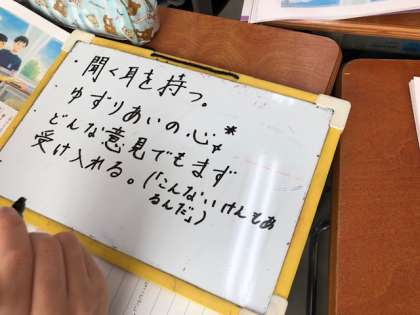 ・聞く耳を持つ。
・ゆずりあいの心*
・どんな意見でもまず
受け入れる。(「こんないけんもあ
るんだ」)